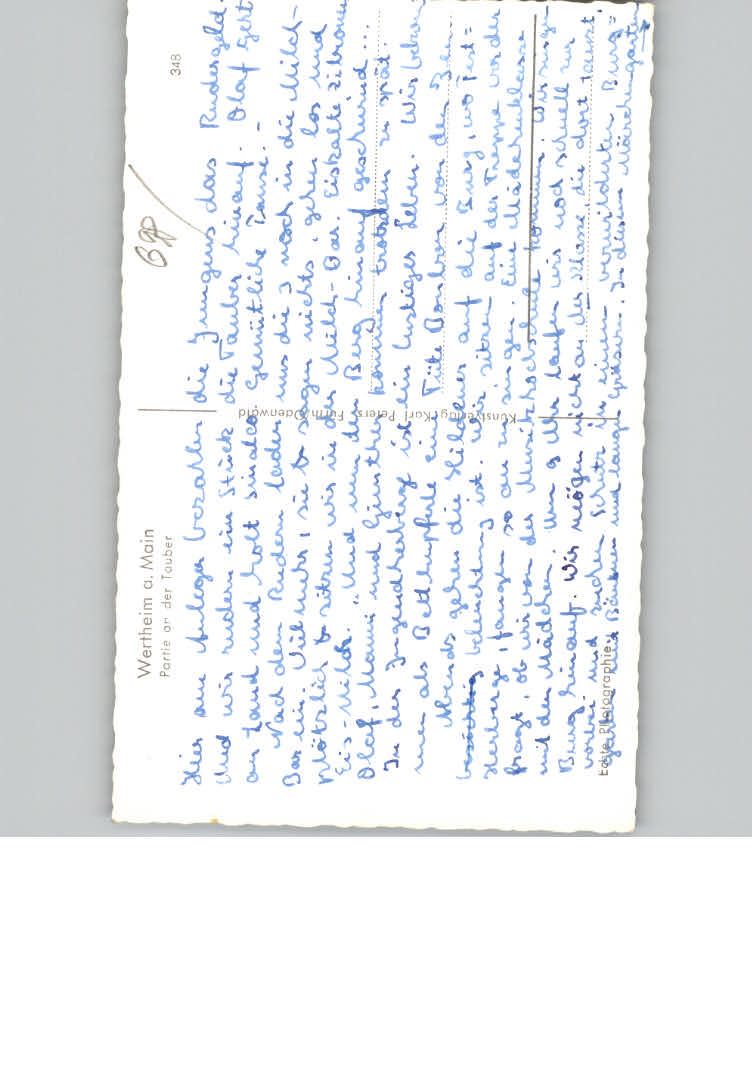 Wertheim a. Main
Partie an der Tauber
348
Kunstverlag Karl Peters, Fürth/Odenwald
Echte Photographie
Hier am Anleger bezahlen die Jungens das Rudergeld.
Und wir rudern ein Stück die Tauber hinauf. Olaf geht
an Land und holt eine Gemütliche Pause. -
Nach dem Rudern laden uns die 3 noch in die Milch-
Bar ein. Viel mehr, sie sagen nichts, gehen los und
plötzlich sitzen wir in der Milch-Bar. Eiskalte Zitronen
Eis-Milch. Und nun den Berg hinauf geschwind...
Olaf, Manni und Günther kommen trotzdem zu spät.
In der Jugendherberge ist ein lustiges Leben. Wir bekom
men als Betthupferle eine Tüte Bonbons von den
Abends gehen die Heilbronner auf die Burg, wo Fest=
beleuchtung ist. Wir sitzen auf der Treppe vor der
Herberge, fangen so an zu singen. Eine Mädchenklasse
fragt, ob wir von der Musikhochschule kommen. Wir singen
mit den Mädchen. Um 9 Uhr laufen wir noch schnell zur
Burg hinauf. Wir mögen nicht an der Masse, die dort tanzt,
vorbei und suchen Schutz in einem verwilderten Burg=
garten mit Bäumen und langen Gräsern. In diesem Märchengarten